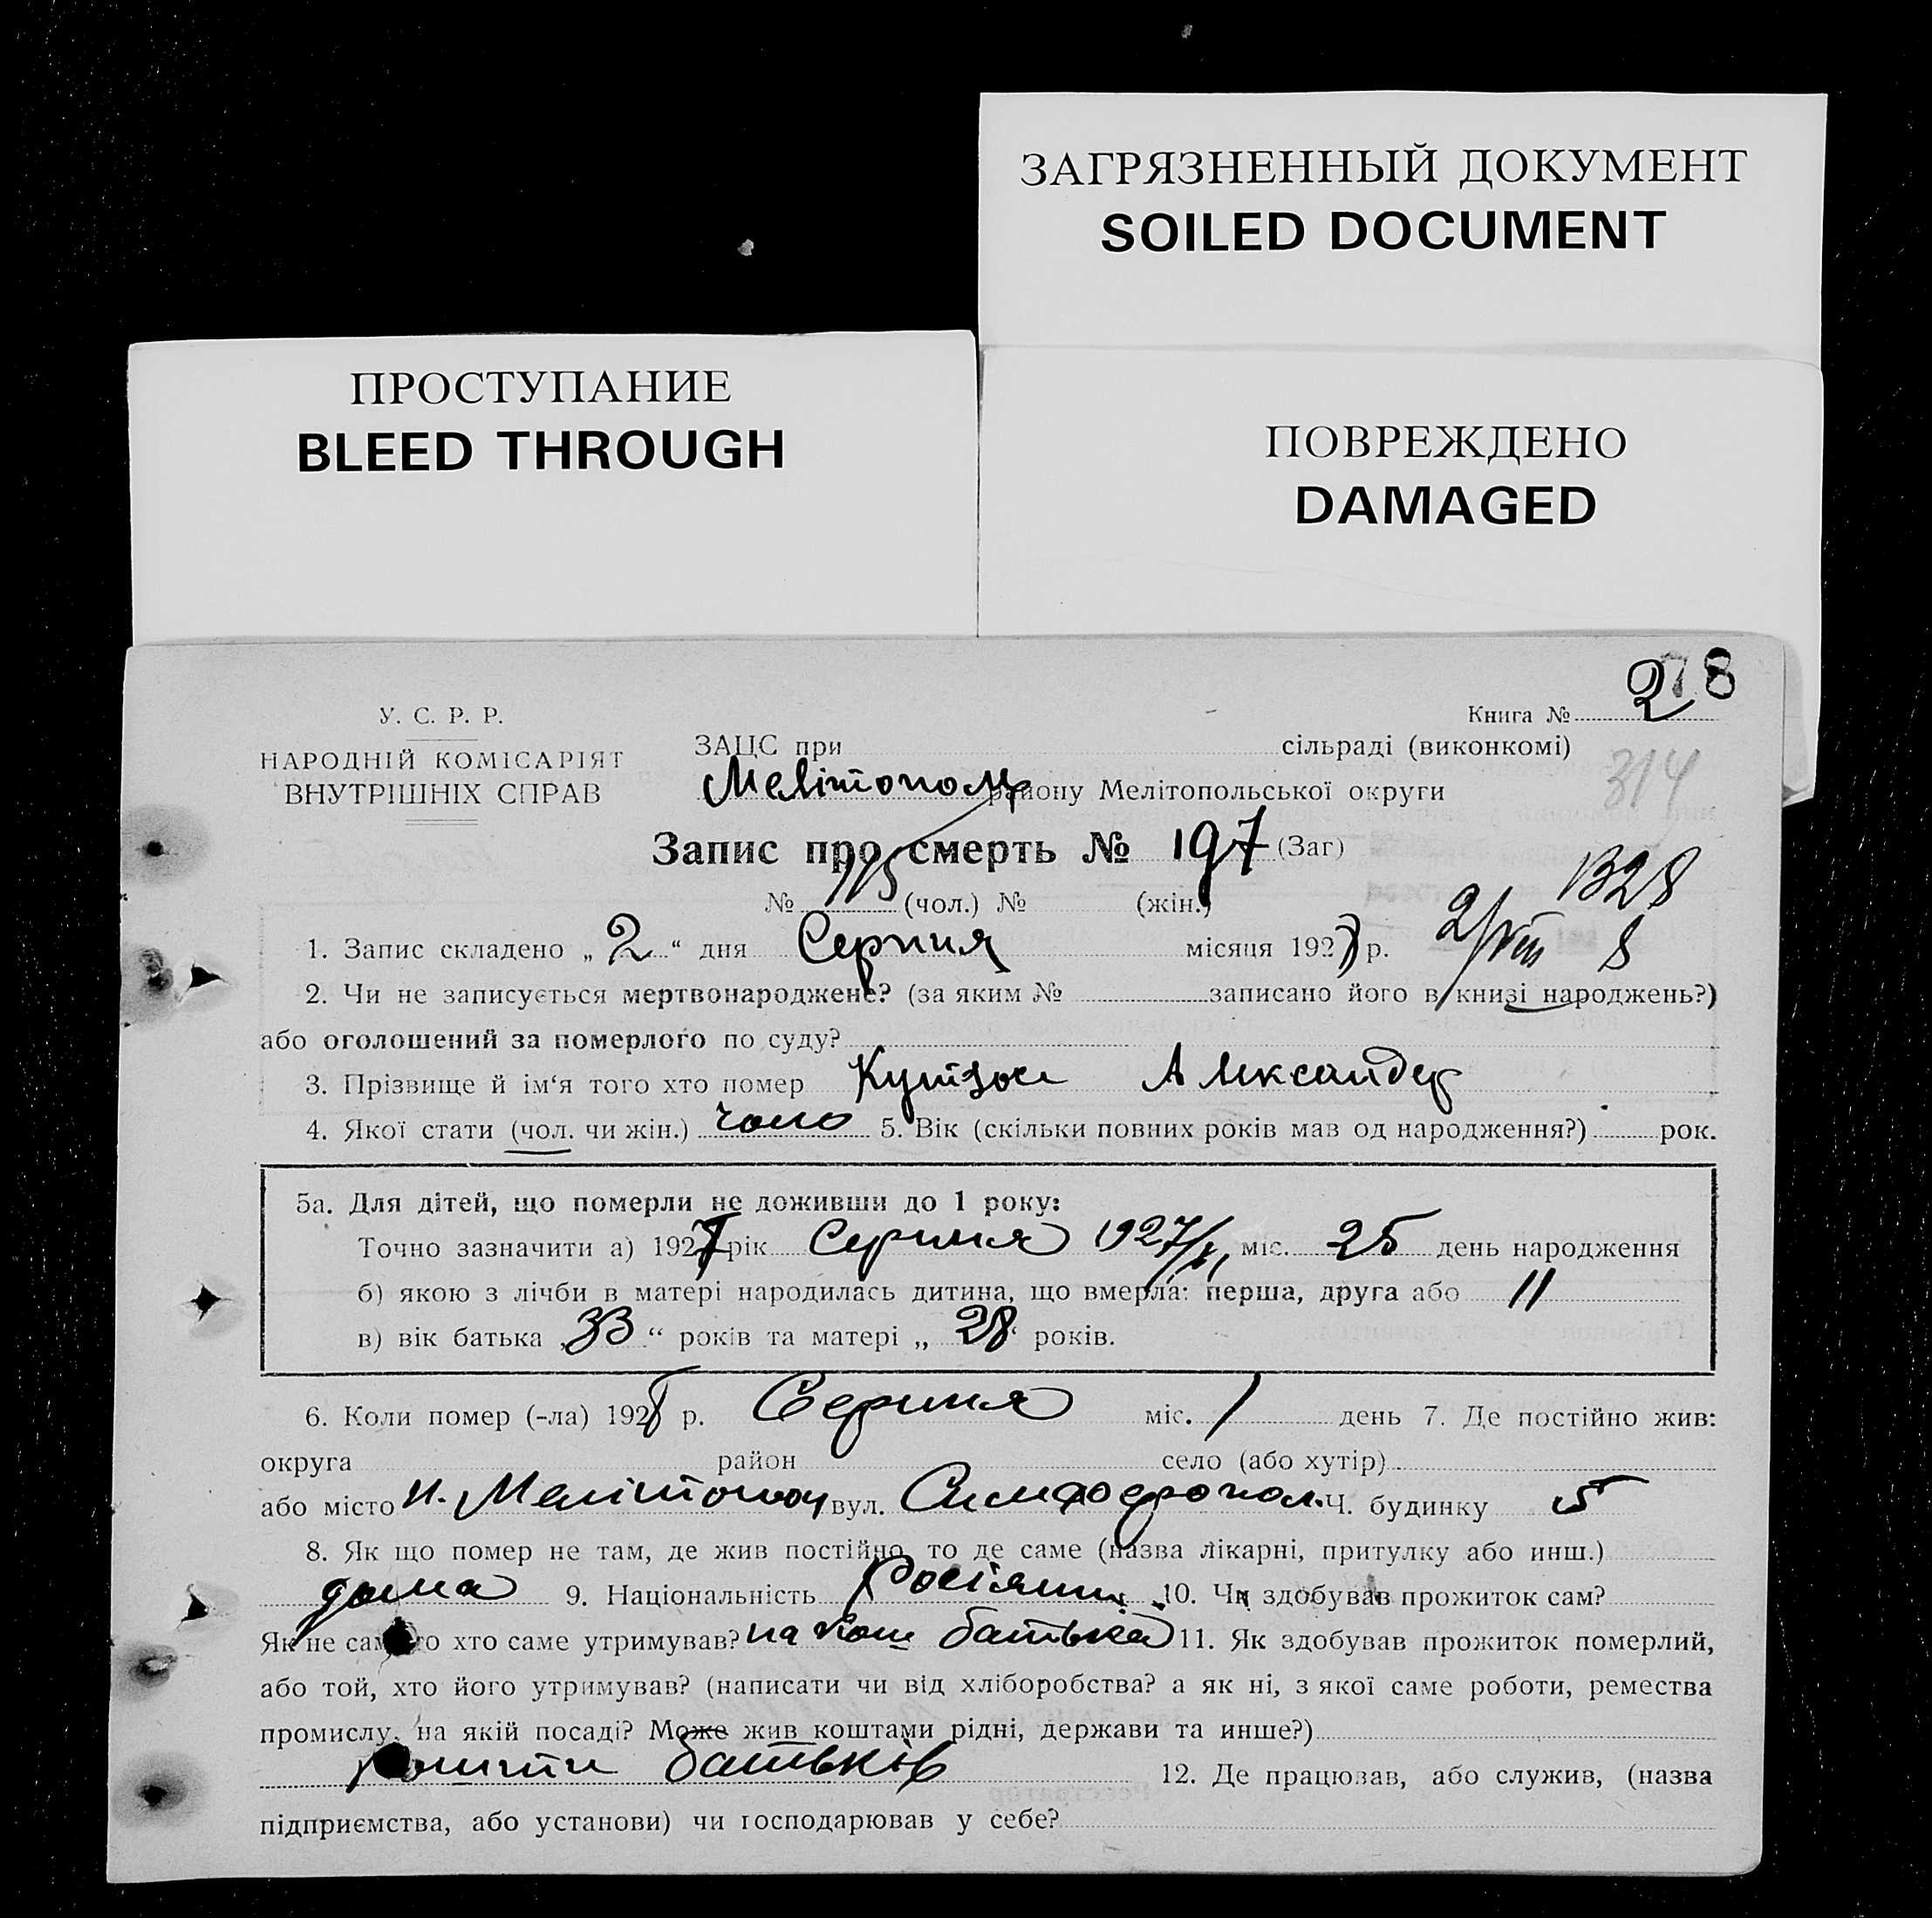 ЗАГРЯЗНЕННЫЙ ДОКУМЕНТ
SOILED DOCUMENT
ПРОСТУПАНИЕ
BLEED THROUGH
ПОВРЕЖДЕНО
DAMAGED
278
У. С. Р. Р.
НАРОДНІЙ КОМІСАРІЯТ
ВНУТРІШНІХ СПРАВ
Книга № 2
ЗАЦС при сільраді (виконкомі)
314
району Мелітопольської округи
Запис про смерть № 197 (Заг)
№ 115 (чол.) № (жін.)
1. Запис складено „ 2 “ дня Серпня місяця 1927 р.
2. Чи не записується мертвонароджене? (за яким № записано його в книзі народжень?)
або оголошений за померлого по суду?
3. Прізвище й ім‘я того хто помер Александр
4. Якої стати (чол. чи жін.) чоло 5. Вік (скільки повних років мав од народження?) рок.
5а. Для дітей, що померли не доживши до 1 року:
Точно зазначити а) 1927 рік Серпня 1927 міс. 25 день народження
б) якою з лічби в матері народилась дитина, що вмерла: перша, друга або 11
в) вік батька „ 33 “ років та матері „ 28 “ років.
6. Коли помер (-ла) 192 р. Серпня міс. 1 день 7. Де постійно жив:
округа район село (або хутір)
або місто м. Мелітополь вул. Симферопол. Ч. будинку 5
8. Як що помер не там, де жив постійно, то де саме (назва лікарні, притулку або инш.)
дома 9. Національність 10. Чи здобував прожиток сам?
Як не сам то хто саме утримував? на кош батька 11. Як здобував прожиток померлий,
або той, хто його утримував? (написати чи від хліборобства? а як ні, з якої саме роботи, ремества
промислу, на якій посаді? Може жив коштами рідні, держави та инше?)
кошти батьків 12. Де працював, або служив, (назва
підприємства, або установи) чи господарював у себе?